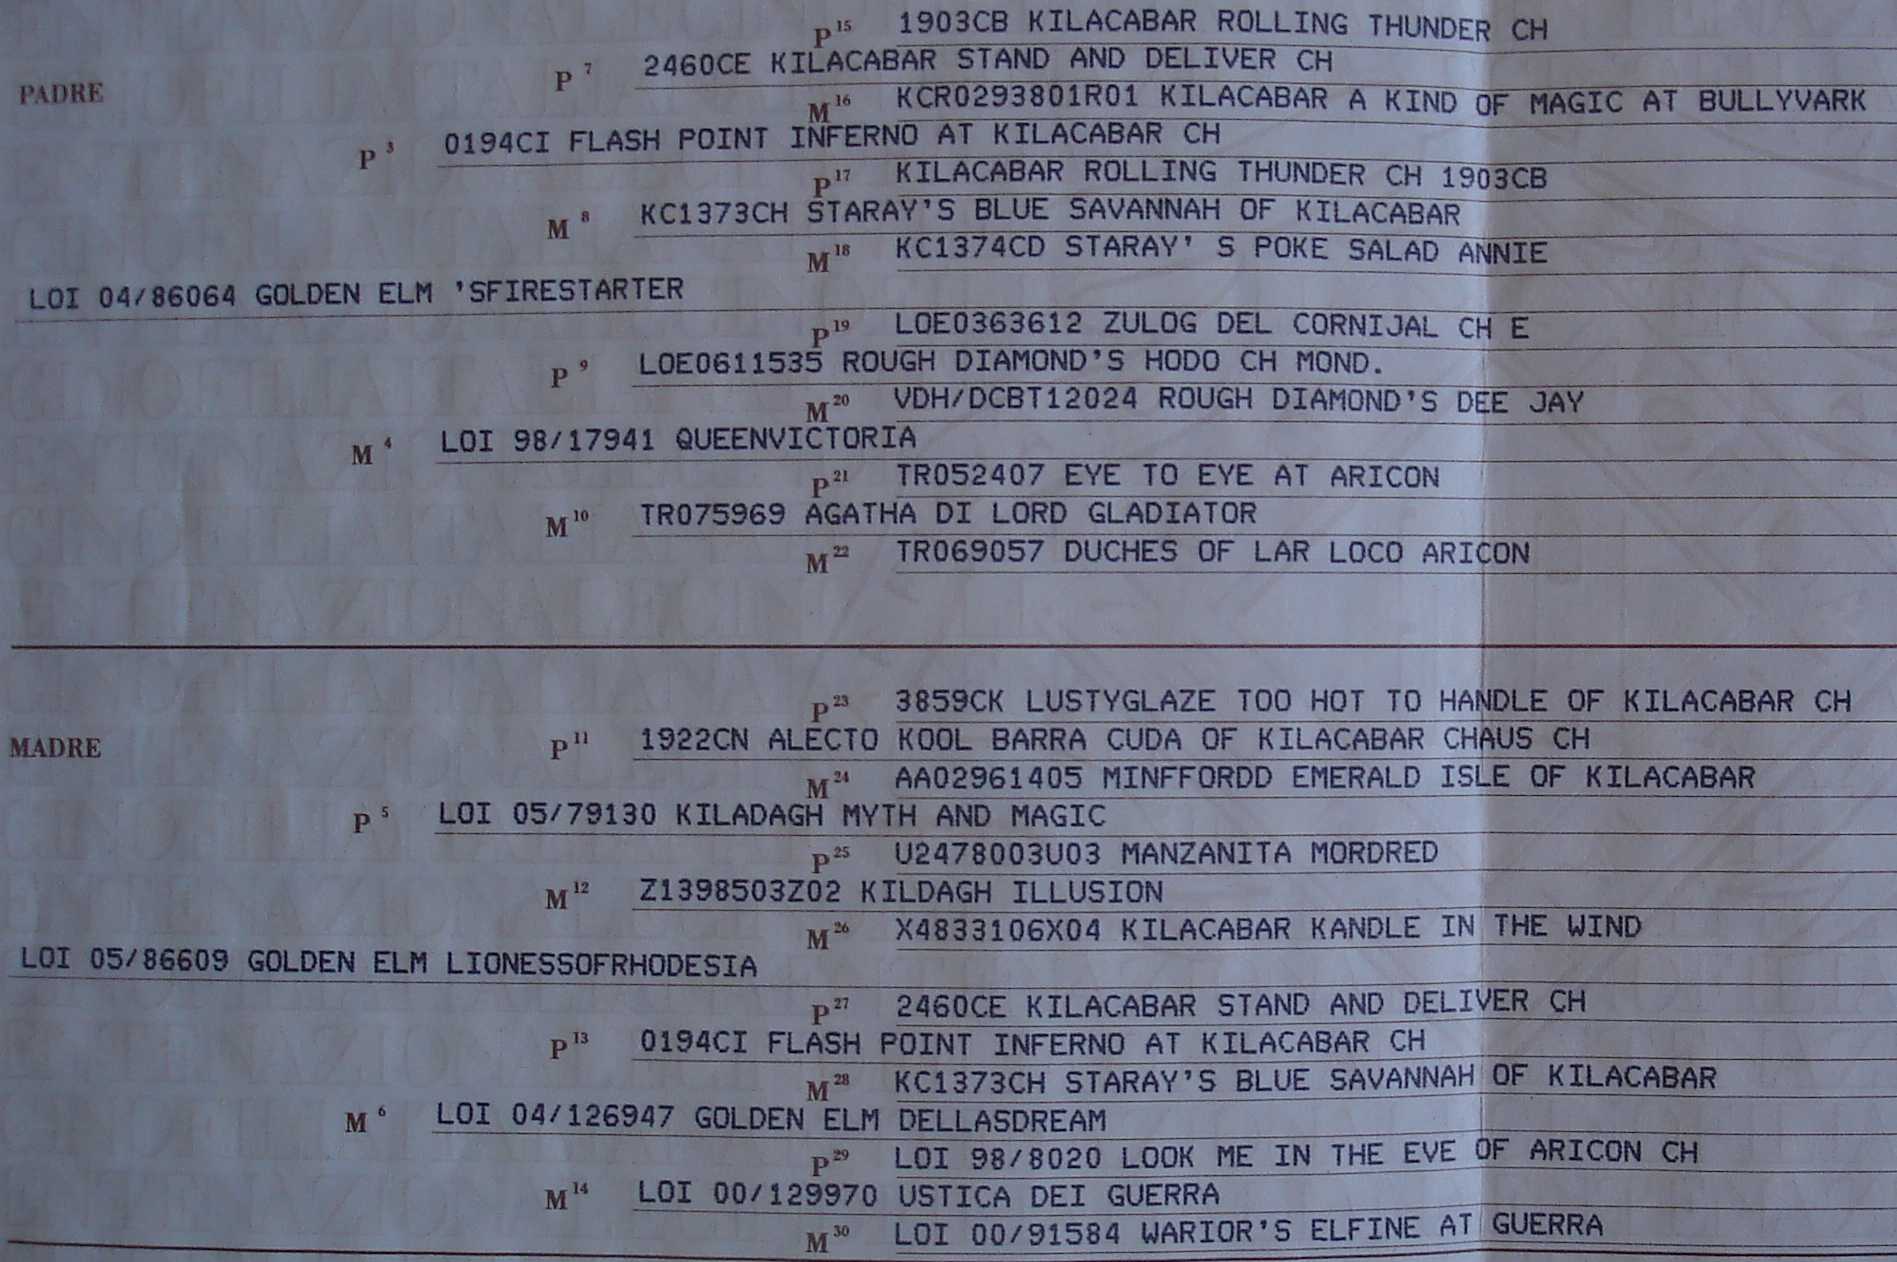 P15 1903CB KILACABAR ROLLING THUNDER CH
P7 2460CE KILACABAR STAND AND DELIVER CH
PADRE
M16 KCR0293801R01 KILACABAR A KIND OF MAGIC AT BULLYVARK
P3 0194CI FLASH POINT INFERNO AT KILACABAR CH
P17 KILACABAR ROLLING THUNDER CH 1903CB
M8 KC1373CH STARAY'S BLUE SAVANNAH OF KILACABAR
M18 KC1374CD STARAY' S POKE SALAD ANNIE
LOI 04/86064 GOLDEN ELM 'SFIRESTARTER
P19 LOE0363612 ZULOG DEL CORNIJAL CH E
P9 LOE0611535 ROUGH DIAMOND'S HODO CH MOND.
M20 VDH/DCBT12024 ROUGH DIAMOND'S DEE JAY
M4 LOI 98/17941 QUEENVICTORIA
P21 TR052407 EYE TO EYE AT ARICON
M10 TR075969 AGATHA DI LORD GLADIATOR
M22 TR069057 DUCHES OF LAR LOCO ARICON
P23 3859CK LUSTYGLAZE TOO HOT TO HANDLE OF KILACABAR CH
MADRE
P11 1922CN ALECTO KOOL BARRA CUDA OF KILACABAR CHAUS CH
M24 AA02961405 MINFFORDD EMERALD ISLE OF KILACABAR
P5 LOI 05/79130 KILADAGH MYTH AND MAGIC
P25 U2478003U03 MANZANITA MORDRED
M12 Z1398503Z02 KILDAGH ILLUSION
M26 X4833106X04 KILACABAR KANDLE IN THE WIND
LOI 05/86609 GOLDEN ELM LIONESSOFRHODESIA
P27 2460CE KILACABAR STAND AND DELIVER CH
P13 0194CI FLASH POINT INFERNO AT KILACABAR CH
M28 KC1373CH STARAY'S BLUE SAVANNAH OF KILACABAR
M6 LOI 04/126947 GOLDEN ELM DELLASDREAM
P29 LOI 98/8020 LOOK ME IN THE EVE OF ARICON CH
M14 LOI 00/129970 USTICA DEI GUERRA
M30 LOI 00/91584 WARIOR'S ELFINE AT GUERRA